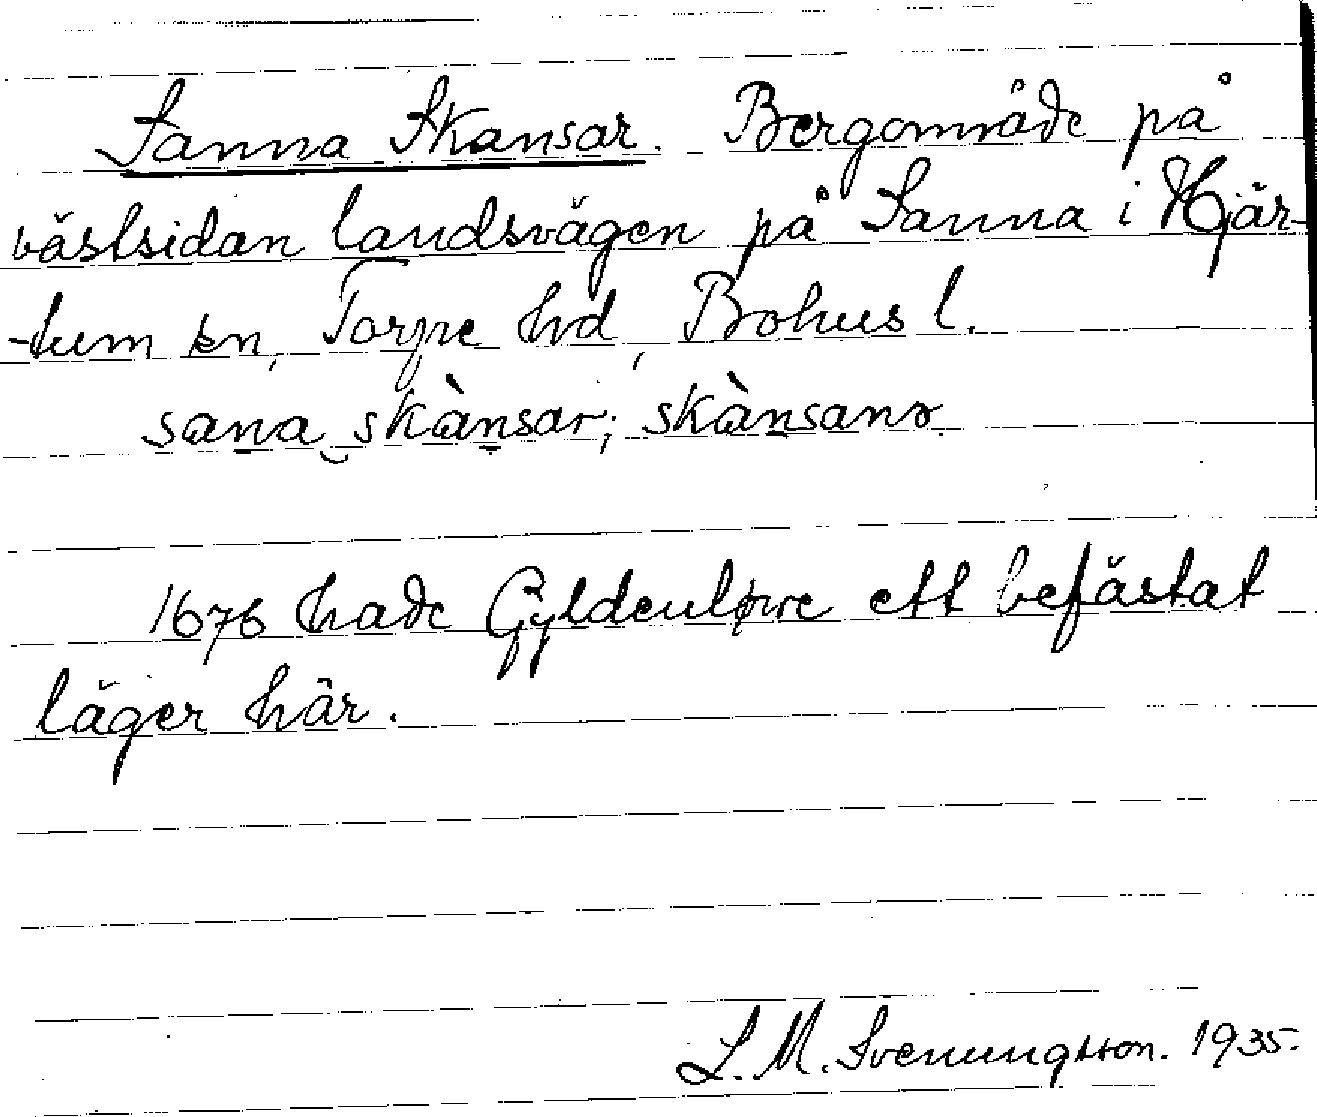 Sanna Skansar. Bergområde på
västsidan landsvägen på Sanna i Hjär-
-tum sn, Torpe hd, Bohus l.
sana skànsar; skànsana
1676 hade Gyldenløve ett befästat
läger här.
L. M. Svenungsson. 1935.